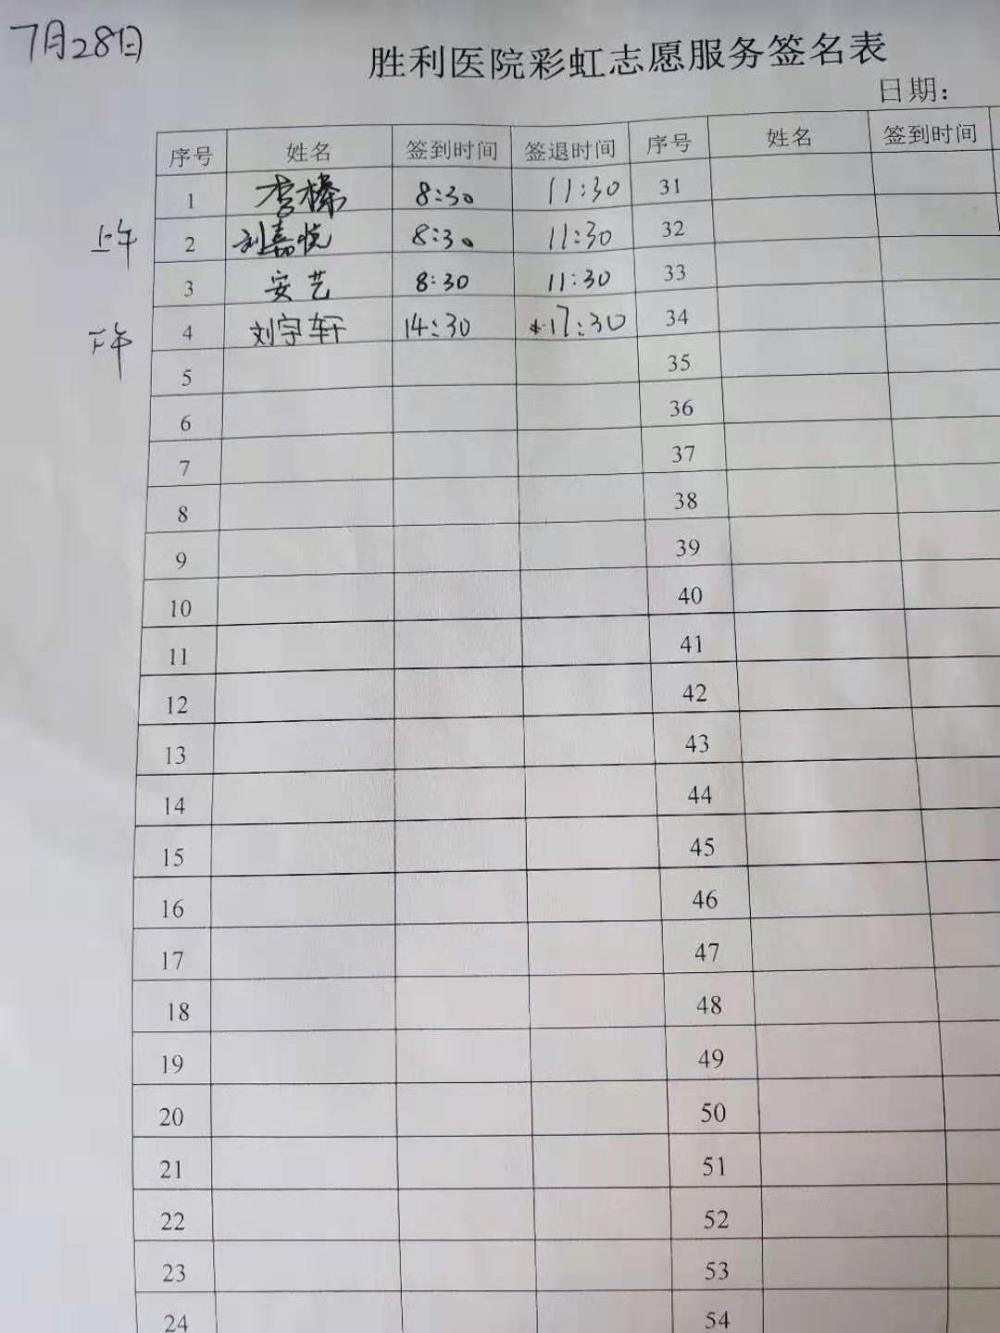 7月28日
胜利医院彩虹志愿服务签名表
日期：
序号 姓名 签到时间 签退时间 序号 姓名 签到时间
1 李榛 8:30 11:30 31
上午 2 刘嘉悦 8:30 11:30 32
3 安艺 8:30 11:30 33
下午 4 刘宇轩 14:30 17:30 34
5 35
6 36
7 37
8 38
9 39
10 40
11 41
12 42
13 43
14 44
15 45
16 46
17 47
18 48
19 49
20 50
21 51
22 52
23 53
24 54